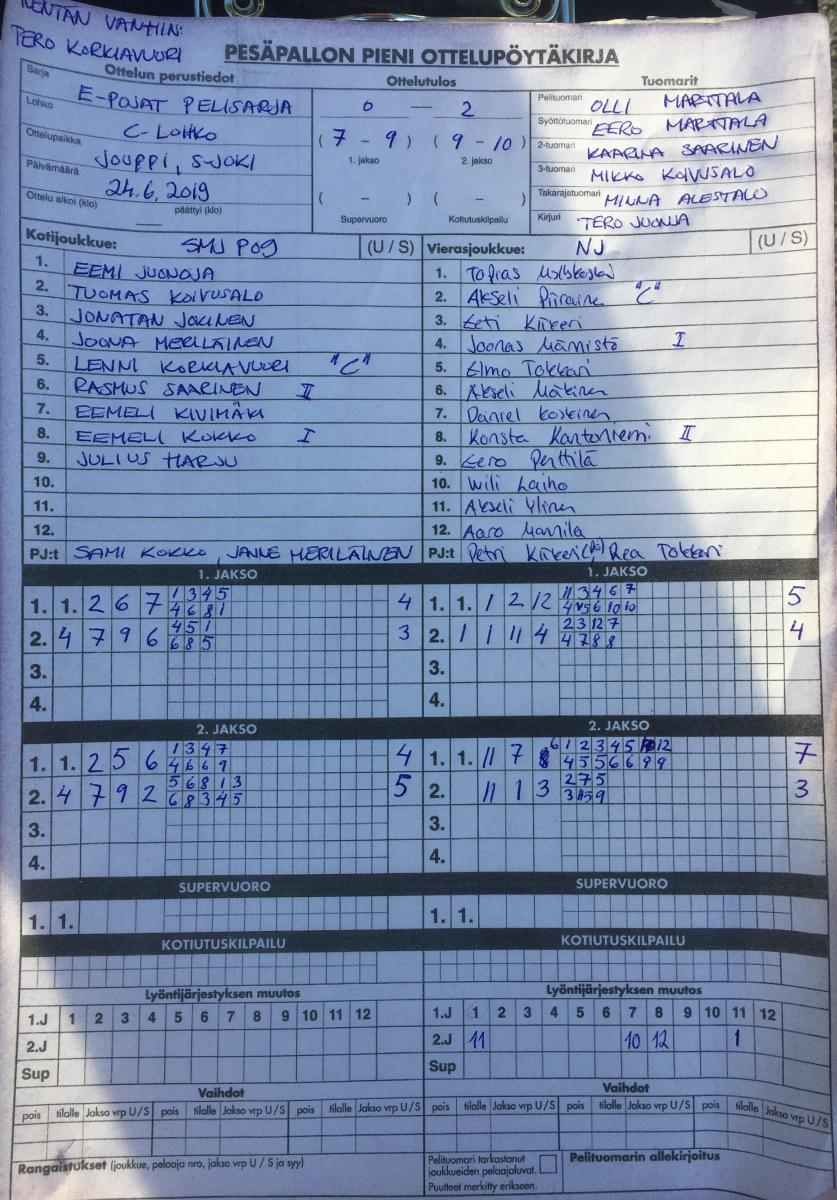 KENTÄN VANHIN:
TERO KORKIAVUORI
PESÄPALLON PIENI OTTELUPÖYTÄKIRJA
Ottelun perustiedot
Sarja E-POJAT PELISARJA
Lohko C-LOHKO
Ottelupaikka JOUPPI, S-JOKI
Päivämäärä 24.6.2019
Ottelu alkoi (klo) päättyi (klo)
Ottelutulos
0 — 2
(7 - 9) (9 - 10)
1. jakso 2. jakso
( - ) ( - )
Supervuoro Kotiutuskilpailu
Tuomarit
Pelituomari OLLI MARTTALA
Syöttötuomari EERO MARTTALA
2-tuomari KAARINA SAARINEN
3-tuomari MIKKO KOIVUSALO
Takarajatuomari MINNA ALESTALO
Kirjuri TERO JUONJA
Kotijoukkue: SMJ P09 (U / S)
1. EEMI JUONOJA
2. TUOMAS KOIVUSALO
3. JONATAN JOKINEN
4. JOONA MERILÄINEN
5. LENNI KORKIAVUORI "C"
6. RASMUS SAARINEN II
7. EEMELI KIVIMÄKI
8. EEMELI KOKKO I
9. JULIUS HARJU
10.
11.
12.
PJ:t SAMI KOKKO, JANNE MERILÄINEN
Vierasjoukkue: NJ (U / S)
1. Topias
2. Akseli Piirainen "C"
3. Eeti Kiikeri
4. Joonas Männistö I
5. Elmo Tokkari
6. Akseli Mäkinen
7. Daniel Koskinen
8. Konsta Kantoniemi II
9. Eero Penttilä
10. Wili Laiho
11. Akseli Ylinen
12. Aaro Mannila
PJ:t Petri Kiikeri Rea Tokkari
1. JAKSO
1. 1. 2 6 7 1 3 4 5 4
4 6 8 1
2. 4 7 9 6 4 5 1 3
6 8 5
3.
4.
1. JAKSO
1. 1. 1 2 12 11 3 4 6 7 5
4 5 6 10 10
2. 1 1 11 4 2 3 12 7 4
4 7 8 8
3.
4.
2. JAKSO
1. 1. 2 5 6 1 3 4 7 4
4 6 6 9
2. 4 7 9 2 5 6 8 1 3 5
6 8 3 4 5
3.
4.
2. JAKSO
1. 1. 11 7 6 1 2 3 4 5 12 7
4 5 5 6 6 9 9
2. 11 1 3 2 7 5 3
3 5 9
3.
4.
SUPERVUORO
1. 1.
SUPERVUORO
1. 1.
KOTIUTUSKILPAILU
KOTIUTUSKILPAILU
Lyöntijärjestyksen muutos
1.J 1 2 3 4 5 6 7 8 9 10 11 12
2.J
Sup
Lyöntijärjestyksen muutos
1.J 1 2 3 4 5 6 7 8 9 10 11 12
2.J 11 10 12 1
Sup
Vaihdot
pois tilalle Jakso vrp U / S pois tilalle Jakso vrp U / S pois tilalle Jakso vrp U / S
Vaihdot
pois tilalle Jakso vrp U / S pois tilalle Jakso vrp U / S pois tilalle Jakso vrp U / S
Rangaistukset (joukkue, pelaaja nro, jakso vrp U / S ja syy)
Pelituomari tarkastanut
joukkueiden pelaajaluvat.
Puutteet merkitty erikseen.
Pelituomarin allekirjoitus